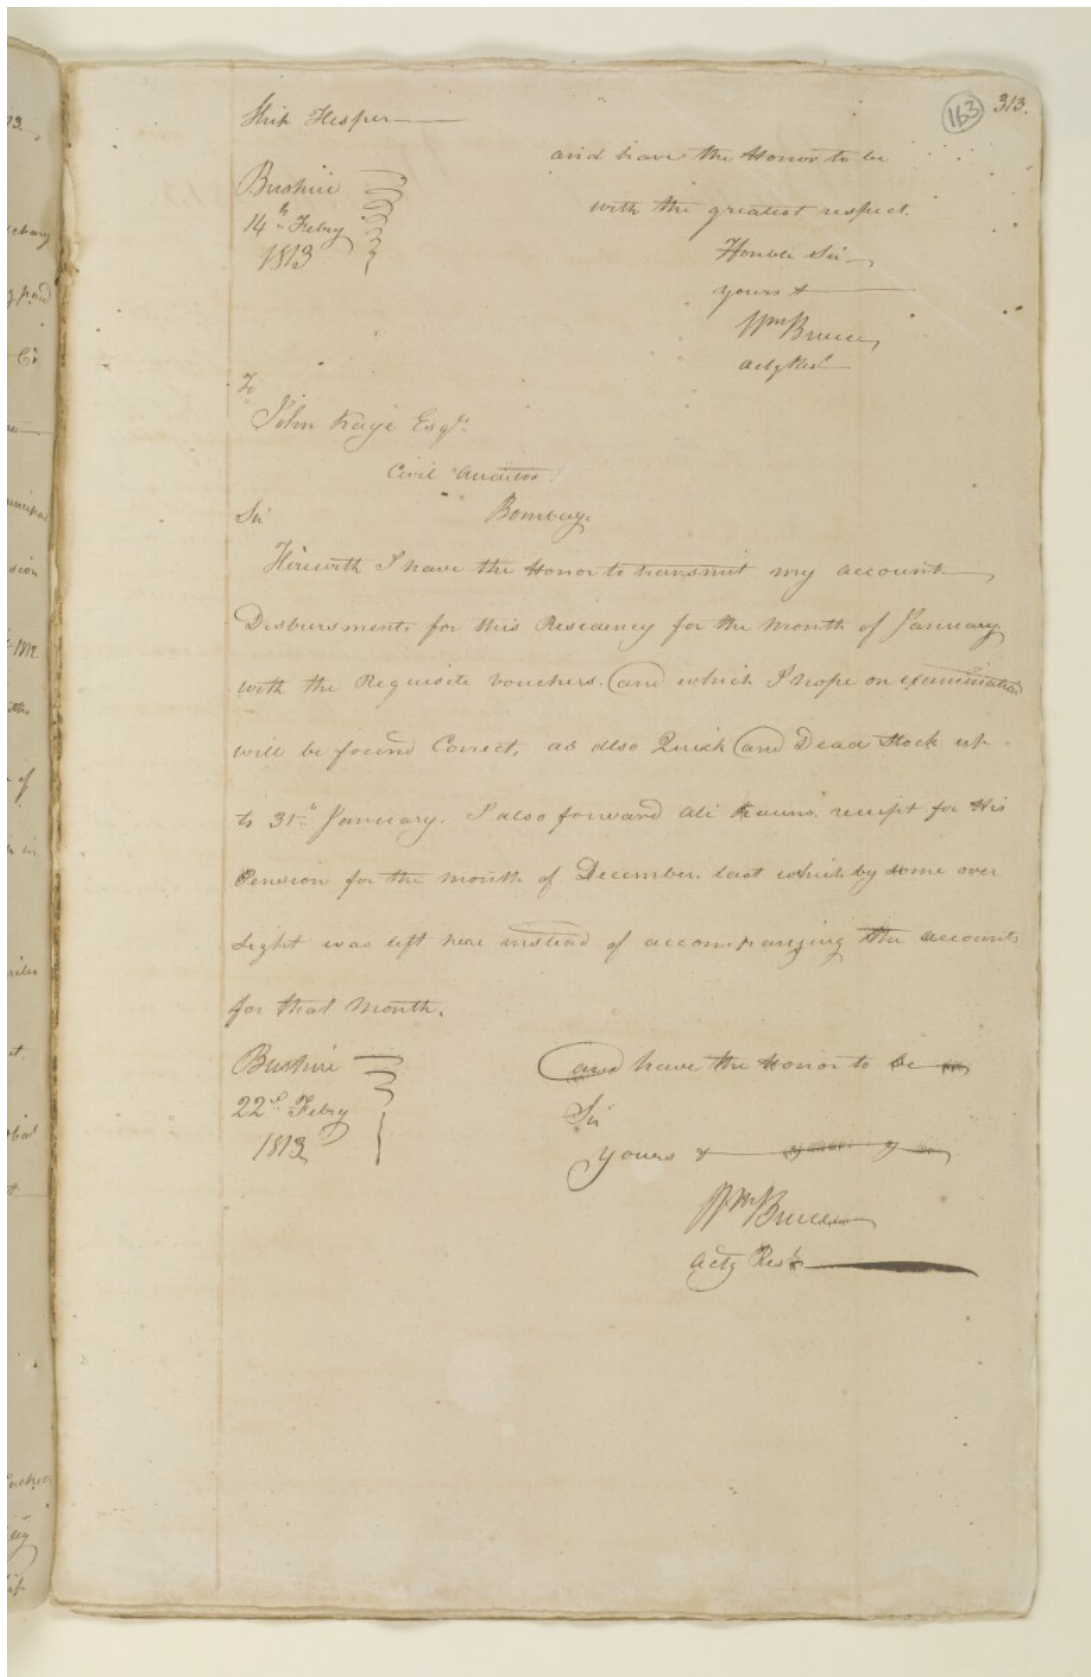 163 313.
Ship Hesper
and have the Honor to be
with the greatest respect.
Honble Sir
yours &
Wm Bruce
Actg Rest
Bushire
14th Febry
1813
To
John Kaye Esqr.
Civil Auditor
Bombay.
Sir
Herewith I have the Honor to transmit my account
Disbursments for this Residency for the Month of January
with the Requisite vouchers. and which I hope on examination
will be found Correct, as also Quick and Dead Stock up
to 31st January. I also forward Ali receipt for His
Pension for the Month of December last which by some over
sight was left here instead of accompanying the accounts
for that Month.
and have the Honor to be
Sir
yours &
Wm Bruce
Actg Rest
Bushire
22d Febry
1813